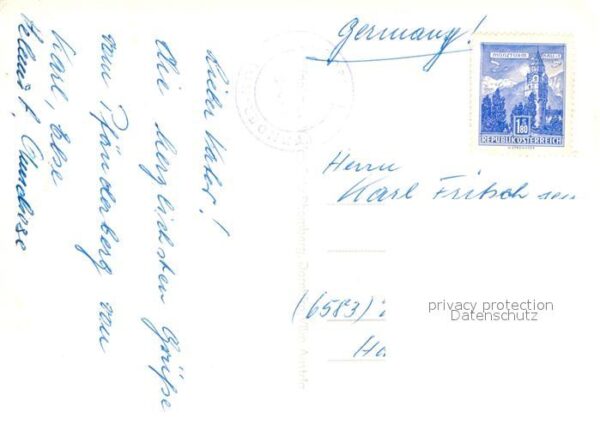 Germany!
MÜNZTURM HALL i. T.
1.80
REPUBLIK ÖSTERREICH
Lieber Vater!
die herzlichsten Grüße
vom Pfänderberg von
Karl, Else
Herrn
Karl Fritsch sen
(6583)
privacy protection
Datenschutz